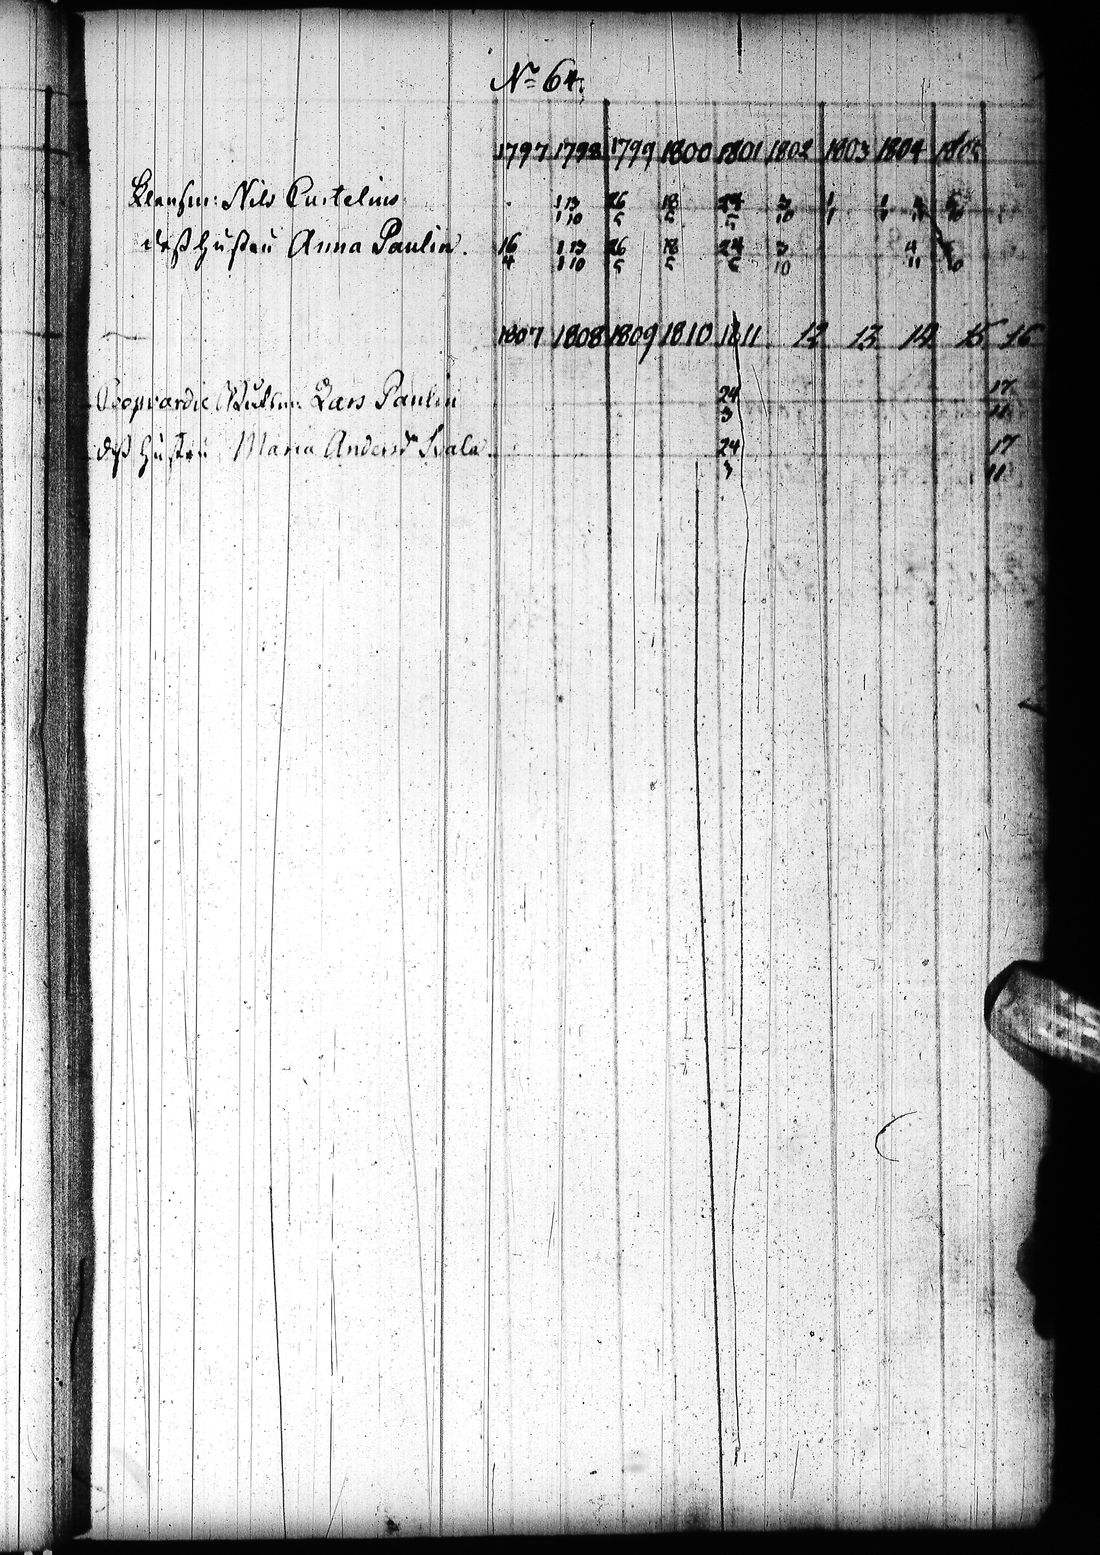 No 64.
1797 1798 1799 1800 1801 1802 1803 1804 1805
Nils Curtelius 1 13 26 18 24 3 1 1 4
1 10 5 5 5 10 1 1 11 10
deß hustru Anna Paulin. 16 1 13 26 18 24 3 4
4 1 10 5 5 5 10 11 10
1807 1808 1809 1810 1811 12 13 14 15 16
Lars Paulin 24 17
3 11
deß hustru Maria Andersdr 24 17
3 11